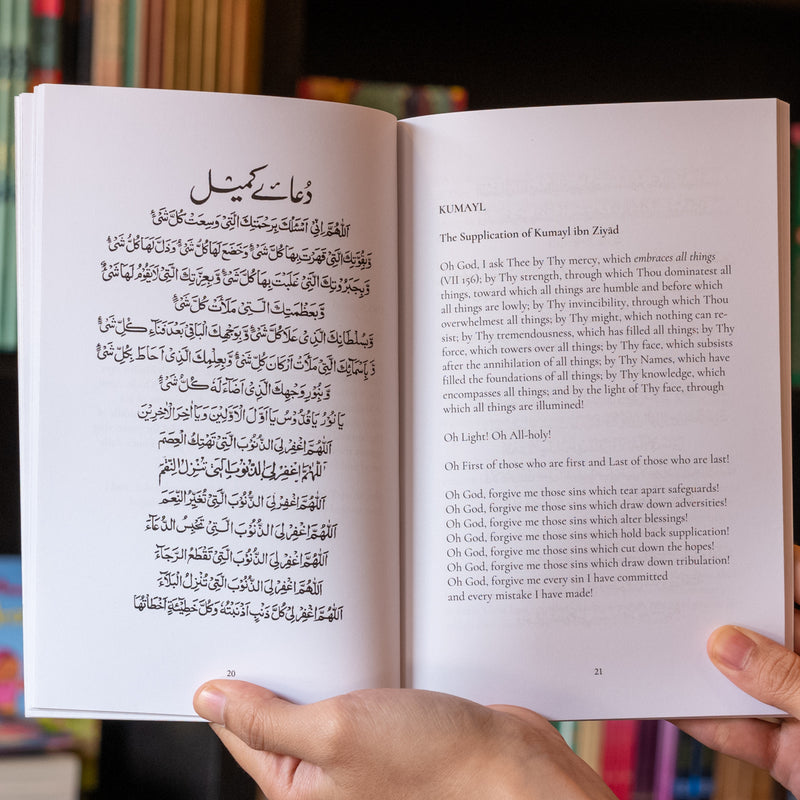 دُعائے کمیل
اَللّٰهُمَّ اِنِّیْ اَسْئَلُكَ بِرَحْمَتِكَ الَّتِیْ وَسِعَتْ كُلَّ شَیْءٍ
وَبِقُوَّتِكَ الَّتِیْ قَهَرْتَ بِهَا كُلَّ شَیْءٍ وَخَضَعَ لَهَا كُلُّ شَیْءٍ وَذَلَّ لَهَا كُلُّ شَیْءٍ
وَبِجَبَرُوْتِكَ الَّتِیْ غَلَبْتَ بِهَا كُلَّ شَیْءٍ وَبِعِزَّتِكَ الَّتِیْ لَا یَقُوْمُ لَهَا شَیْءٌ
وَبِعَظَمَتِكَ الَّتِیْ مَلَأَتْ كُلَّ شَیْءٍ
وَبِسُلْطَانِكَ الَّذِیْ عَلَا كُلَّ شَیْءٍ وَبِوَجْهِكَ الْبَاقِیْ بَعْدَ فَنَاءِ كُلِّ شَیْءٍ
وَبِاَسْمَائِكَ الَّتِیْ مَلَأَتْ اَرْكَانَ كُلِّ شَیْءٍ وَبِعِلْمِكَ الَّذِیْ اَحَاطَ بِكُلِّ شَیْءٍ
وَبِنُوْرِ وَجْهِكَ الَّذِیْ اَضَاءَ لَهُ كُلُّ شَیْءٍ
یَا نُوْرُ یَا قُدُّوْسُ یَا اَوَّلَ الْاَوَّلِیْنَ وَیَا اٰخِرَ الْاٰخِرِیْنَ
اَللّٰهُمَّ اغْفِرْ لِیَ الذُّنُوْبَ الَّتِیْ تَهْتِكُ الْعِصَمَ
اَللّٰهُمَّ اغْفِرْ لِیَ الذُّنُوْبَ الَّتِیْ تُنْزِلُ النِّقَمَ
اَللّٰهُمَّ اغْفِرْ لِیَ الذُّنُوْبَ الَّتِیْ تُغَیِّرُ النِّعَمَ
اَللّٰهُمَّ اغْفِرْ لِیَ الذُّنُوْبَ الَّتِیْ تَحْبِسُ الدُّعَاءَ
اَللّٰهُمَّ اغْفِرْ لِیَ الذُّنُوْبَ الَّتِیْ تَقْطَعُ الرَّجَاءَ
اَللّٰهُمَّ اغْفِرْ لِیَ الذُّنُوْبَ الَّتِیْ تُنْزِلُ الْبَلَاءَ
اَللّٰهُمَّ اغْفِرْ لِیْ كُلَّ ذَنْبٍ اَذْنَبْتُهُ وَكُلَّ خَطِیْئَةٍ اَخْطَأْتُهَا
20
KUMAYL
The Supplication of Kumayl ibn Ziyād
Oh God, I ask Thee by Thy mercy, which embraces all things
(VII 156); by Thy strength, through which Thou dominatest all
things, toward which all things are humble and before which
all things are lowly; by Thy invincibility, through which Thou
overwhelmest all things; by Thy might, which nothing can re-
sist; by Thy tremendousness, which has filled all things; by Thy
force, which towers over all things; by Thy face, which subsists
after the annihilation of all things; by Thy Names, which have
filled the foundations of all things; by Thy knowledge, which
encompasses all things; and by the light of Thy face, through
which all things are illumined!
Oh Light! Oh All-holy!
Oh First of those who are first and Last of those who are last!
Oh God, forgive me those sins which tear apart safeguards!
Oh God, forgive me those sins which draw down adversities!
Oh God, forgive me those sins which alter blessings!
Oh God, forgive me those sins which hold back supplication!
Oh God, forgive me those sins which cut down the hopes!
Oh God, forgive me those sins which draw down tribulation!
Oh God, forgive me every sin I have committed
and every mistake I have made!
21